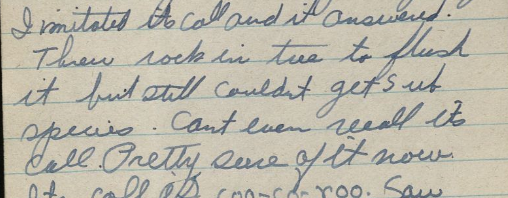 I imitated its call and it answered.
Threw rock in tree to flush
it but still couldnt get sub
species. Cant even recall its
call. Pretty sure of it now.
Its call is coo-co-roo. Saw